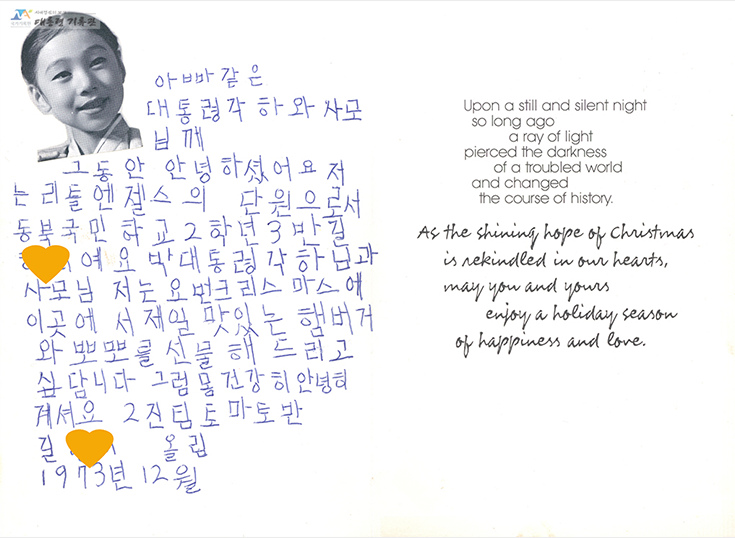 대통령기록관
아빠같은
대통령각하와사모
님께
그동안 안녕하셨어요 저
는 리틀엔젤스의 단원으로서
동북국민 하교2학년3반길
예요 박대통령각하님과
사모님 저는요번크리스마스에
이곳에서제일 맛있는 햄버거
와 뽀뽀를선물해 드리고
싶답니다 그럼 건강히안녕히
계셔요 2진팀토마토반
길 올림
1973년12월
Upon a still and silent night
so long ago
a ray of light
pierced the darkness
of a troubled world
and changed
the course of history.
As the shining hope of Christmas
is rekindled in our hearts,
may you and yours
enjoy a holiday season
of happiness and love.